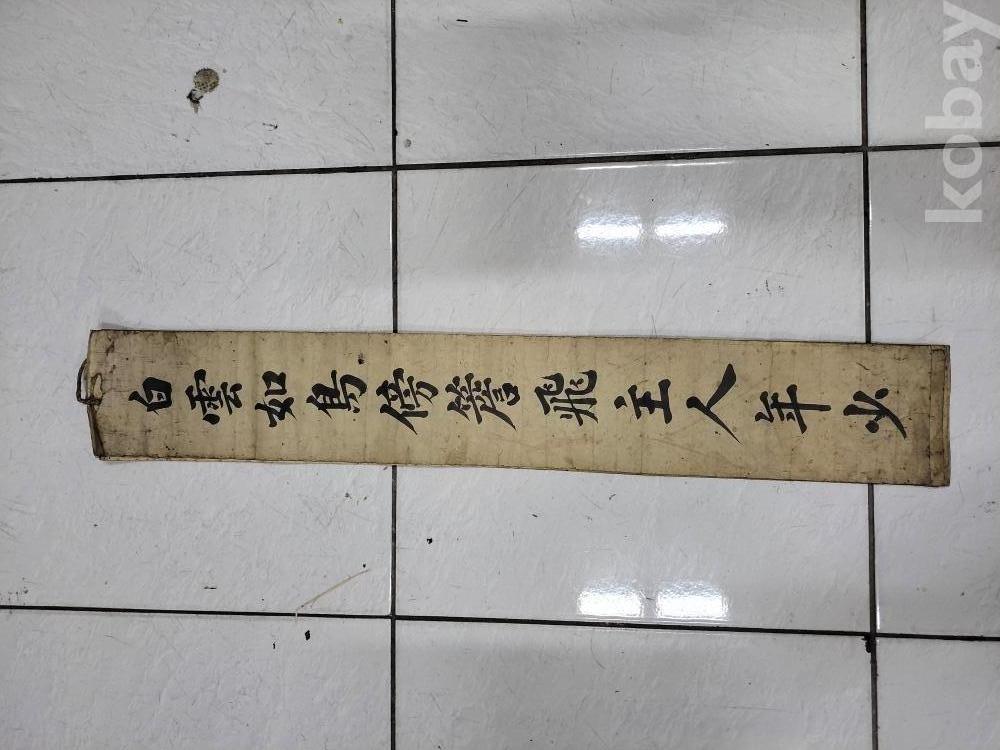 白雲如鳥傍簷飛主人年少
kobay